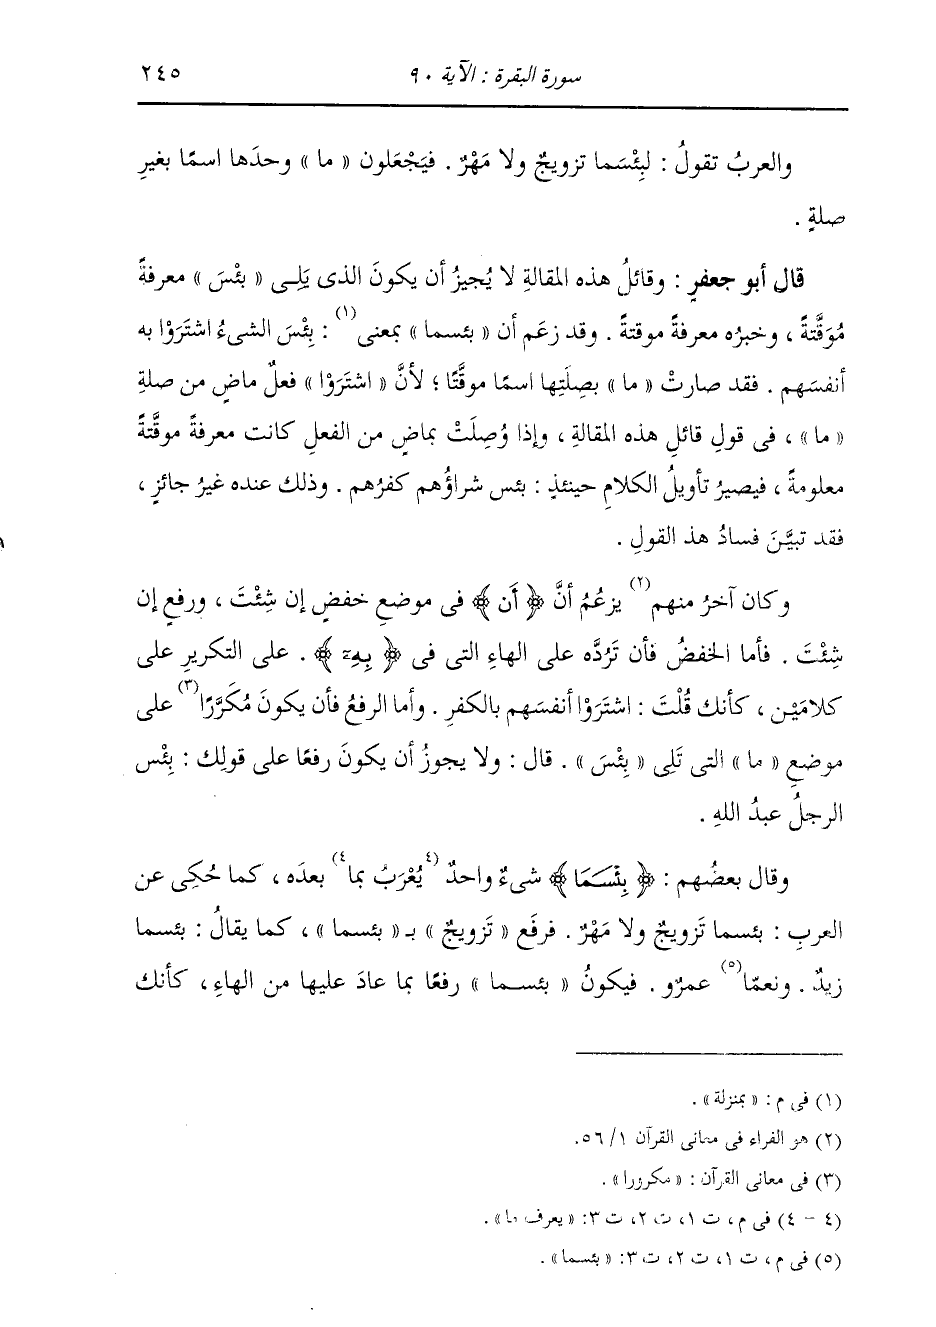 سورة البقرة : الآية ٩٠ ٢٤٥
والعربُ تقولُ : لبِئْسَما تزويجٌ ولا مَهْرٌ . فيَجْعَلون « ما » وحدَها اسمًا بغيرِ
صلةٍ .
قال أبو جعفرٍ : وقائلُ هذه المقالةِ لا يُجيزُ أن يكونَ الذى يَلِى « بئْسَ » معرفةً
مُوَقَّتةً ، وخبرُه معرفةً موقتةً . وقد زعَم أن « بئسما » بمعنى(١) : بِئْسَ الشىءُ اشتَرَوْا به
أنفسَهم . فقد صارتْ « ما » بصِلَتِها اسمًا موقَّتًا ؛ لأنَّ « اشتَرَوْا » فعلٌ ماضٍ من صلةِ
« ما » ، فى قولِ قائلِ هذه المقالةِ ، وإذا وُصِلَتْ بماضٍ من الفعلِ كانت معرفةً موقَّتةً
معلومةً ، فيصيرُ تأويلُ الكلامِ حينئذٍ : بئس شراؤُهم كفرُهم . وذلك عنده غيرُ جائزٍ ،
فقد تبيَّنَ فسادُ هذ القولِ .
وكان آخرُ منهم(٢) يزعُمُ أنَّ ﴿ أَن ﴾ فى موضعِ خفضٍ إن شِئْتَ ، ورفعٍ إن
شِئْتَ . فأما الخفضُ فأن تَرُدَّه على الهاءِ التى فى ﴿ بِهِۦٓ ﴾ . على التكريرِ على
كلامَيْن ، كأنك قُلْتَ : اشتَرَوْا أنفسَهم بالكفرِ . وأما الرفعُ فأن يكونَ مُكَرَّرًا(٣) على
موضعِ « ما » التى تَلِى « بِئْسَ » . قال : ولا يجوزُ أن يكونَ رفعًا على قولِك : بِئْس
الرجلُ عبدُ اللهِ .
وقال بعضُهم : ﴿ بِئْسَمَا ﴾ شىءٌ واحدٌ (٤يُعْرَبُ بما٤) بعدَه ، كما حُكِى عن
العربِ : بئسما تَزويجٌ ولا مَهْرٌ . فرفَع « تَزويجٌ » بـ « بئسما » ، كما يقالُ : بئسما
زيدٌ . ونعمّا(٥) عمرٌو . فيكونُ « بئسما » رفعًا بما عادَ عليها من الهاءِ ، كأنك
(١) فى م : « بمنزلة » .
(٢) هو الفراء فى معانى القرآن ١/ ٥٦.
(٣) فى معانى القرآن : « مكرورا » .
(٤ - ٤) فى م، ت ١، ت ٢، ت ٣: « يعرف ما» .
(٥) فى م، ت ١، ت ٢، ت ٣: « بئسما» .